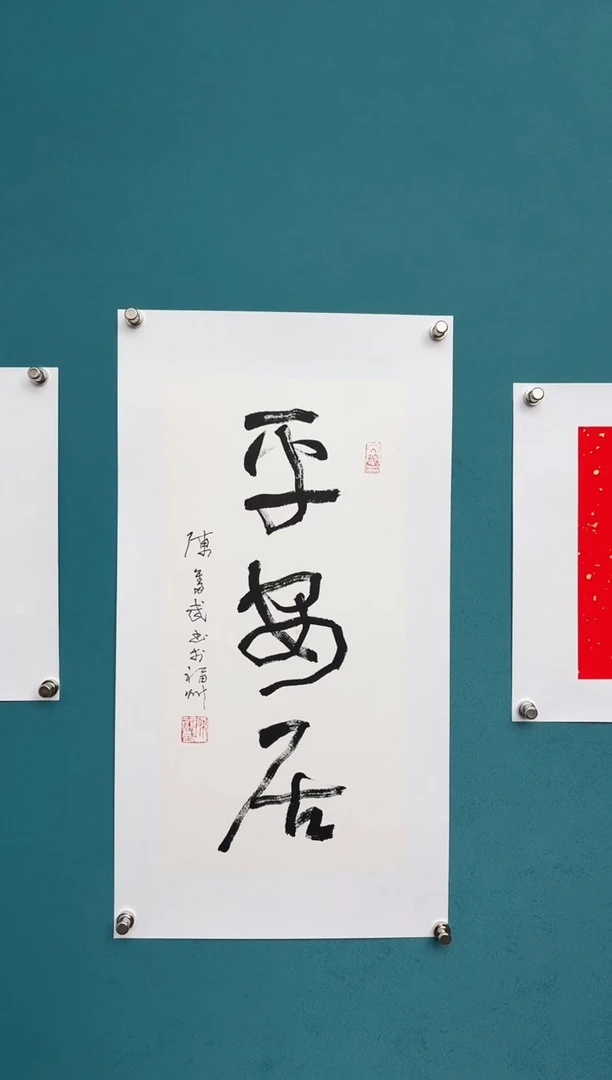 平安居
陳奮武書於福州